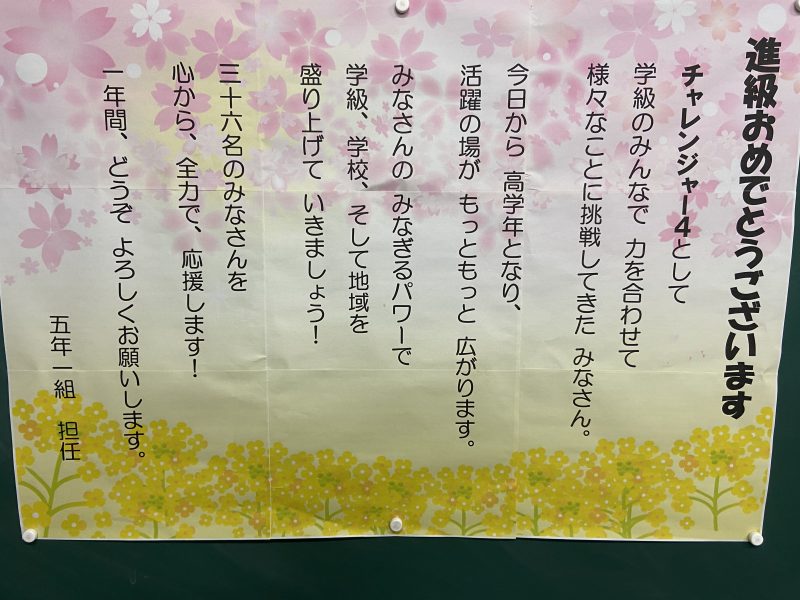 進級おめでとうございます
チャレンジャー4として
学級のみんなで 力を合わせて
様々なことに挑戦してきた みなさん。
今日から 高学年となり、
活躍の場が もっともっと 広がります。
みなさんの みなぎるパワーで
学級、学校、そして地域を
盛り上げて いきましょう!
三十六名のみなさんを
心から、全力で、応援します!
一年間、どうぞ よろしくお願いします。
五年一組 担任